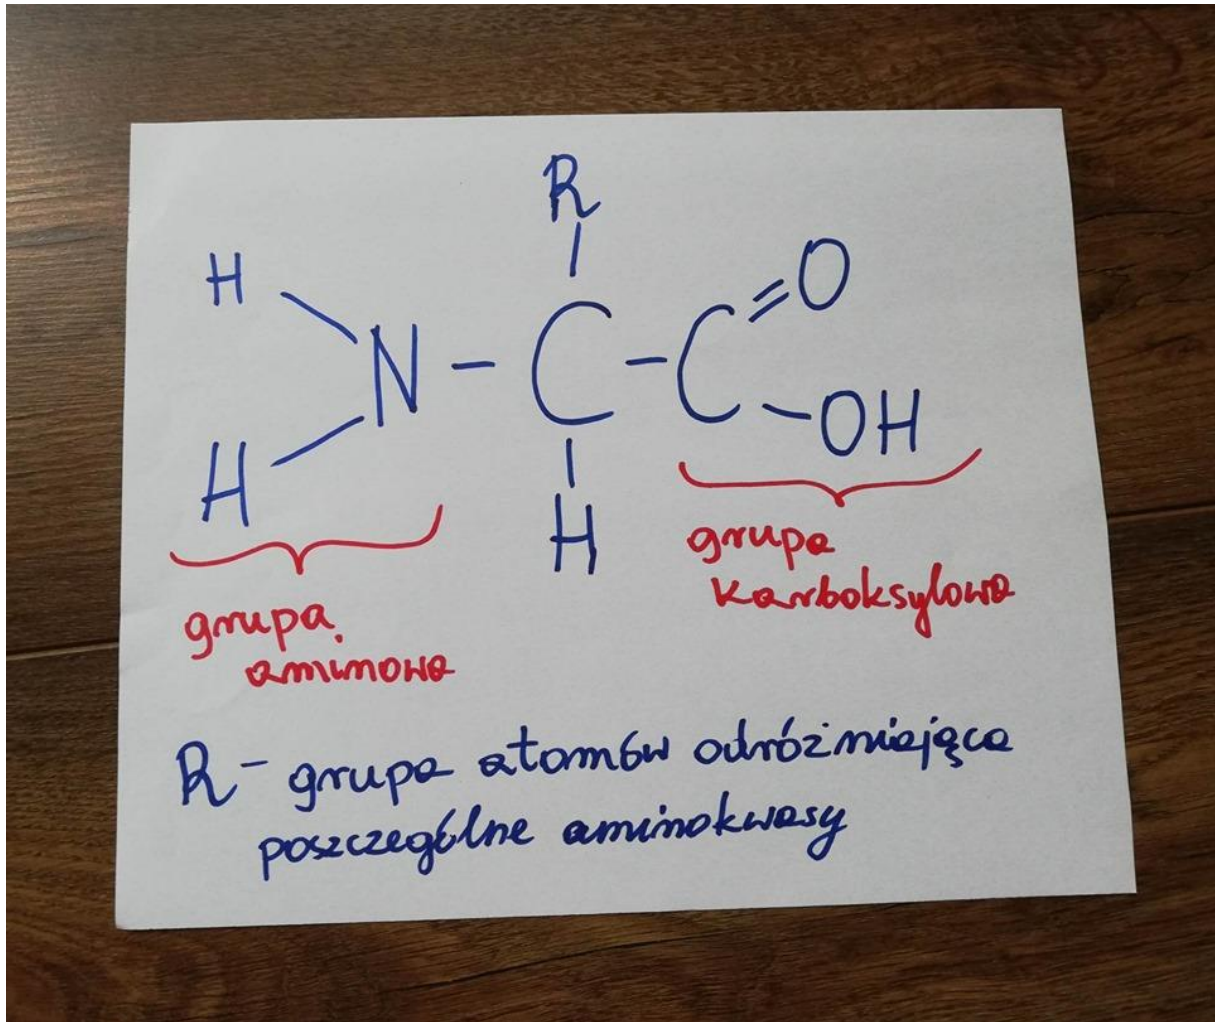 R
H
O
N - C - C
OH
H
H
grupa
aminowa
grupa
karboksylowa
R - grupa atomów odróżniająca
poszczególne aminokwasy